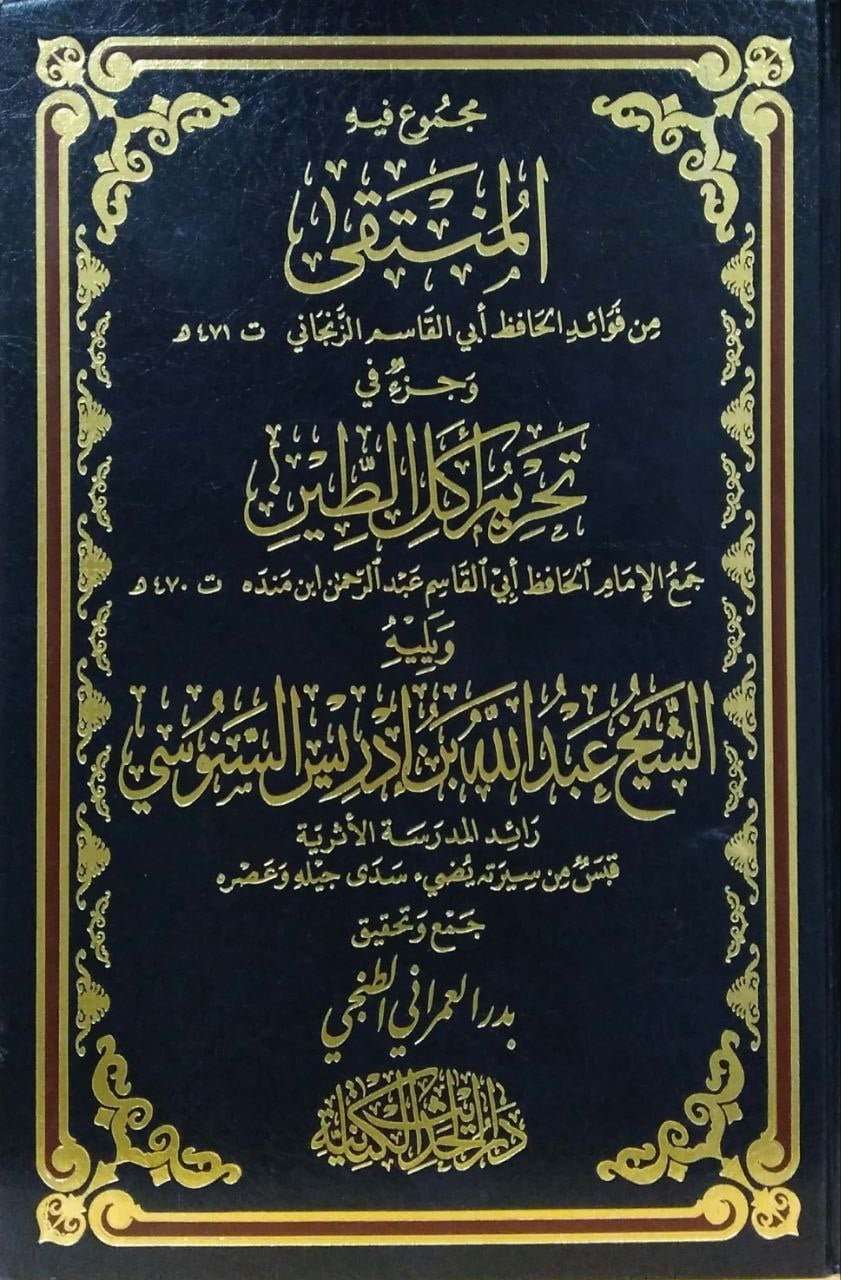 مجموع فيه
المُنتقى
مِن فَوَائدِ الحَافظ أبي القَاسم الزَّنجَاني ت ٤٧١ هـ
وَجزءٌ في
تَحْرِيمُ أَكلِ الطِّيْنِ
جَمعُ الإمَامِ الحَافظِ أَبِيْ القَاسِمِ عَبْد الرّحمٰن ابن مَندَه ت ٤٧٠ هـ
وَيَلِيْهُ
الشَّيْخُ عَبْدُ اللَّهُ بَنُ إِدْرِيْسَ السَّنُوسي
رَائِد المَدرَسَة الأثريّة
قبَسٌ مِن سِيرَته يُضيء سَدَى جيْلهِ وَعَصْره
جَمْع وَتحقيق
بدر العمراني الطنجي
دار الحديث الكتانية